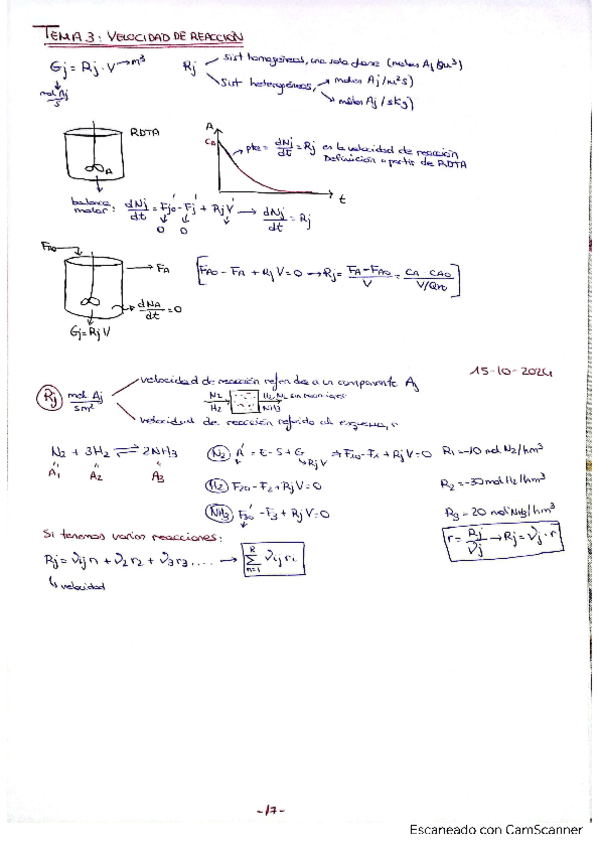 TEMA 3: VELOCIDAD DE REACCIÓN
Gj = Rj · V → m³
mol Aj/s
Rj
Sist homogéneas, una sola fase (moles Aj/s m³)
Sist heterogéneas, moles Aj/m²s)
moles Aj/skg)
RDTA
A
A
CA
pte = dNj/dt = Rj es la velocidad de reacción
Definición a partir de RDTA
t
balance molar: dNj/dt = Fj0 - Fj + RjV → dNj/dt = Rj
0 0
FA0
FA
dNA/dt = 0
Gj = Rj V
[FA0 - FA + RjV = 0 → Rj = FA - FA0/V = CA - CA0/V/Qv0]
15-10-2024
Rj mol Aj/sm³
velocidad de reacción referida a un componente Aj
N2
H2
H2, N2 sin reaccionar
NH3
velocidad de reacción referida al esquema, r
N2 + 3H2 ⇌ 2NH3
A1 A2 A3
N2 A = E - S + G ⇒ F10 - F1 + RjV = 0
RjV
R1 = -10 mol N2/hm³
H2 F20 - F2 + RjV = 0
R2 = -30 mol H2/hm³
NH3 F30 - F3 + RjV = 0
R3 = 20 mol NH3/hm³
r = Rj/νj → Rj = νj · r
Si tenemos varias reacciones:
Rj = ν1j r1 + ν2 r2 + ν3 r3 .... → Σ νij ri
R
n=1
velocidad
-17-
Escaneado con CamScanner